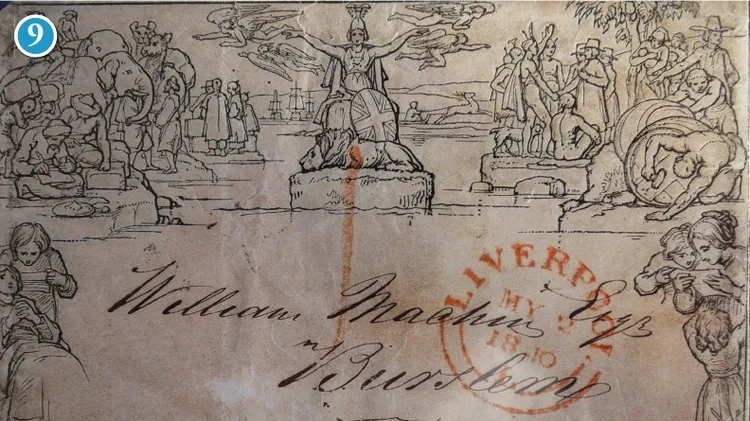 9
William Machin Esqr
Burslem
LIVERPOOL
MY 2
1840